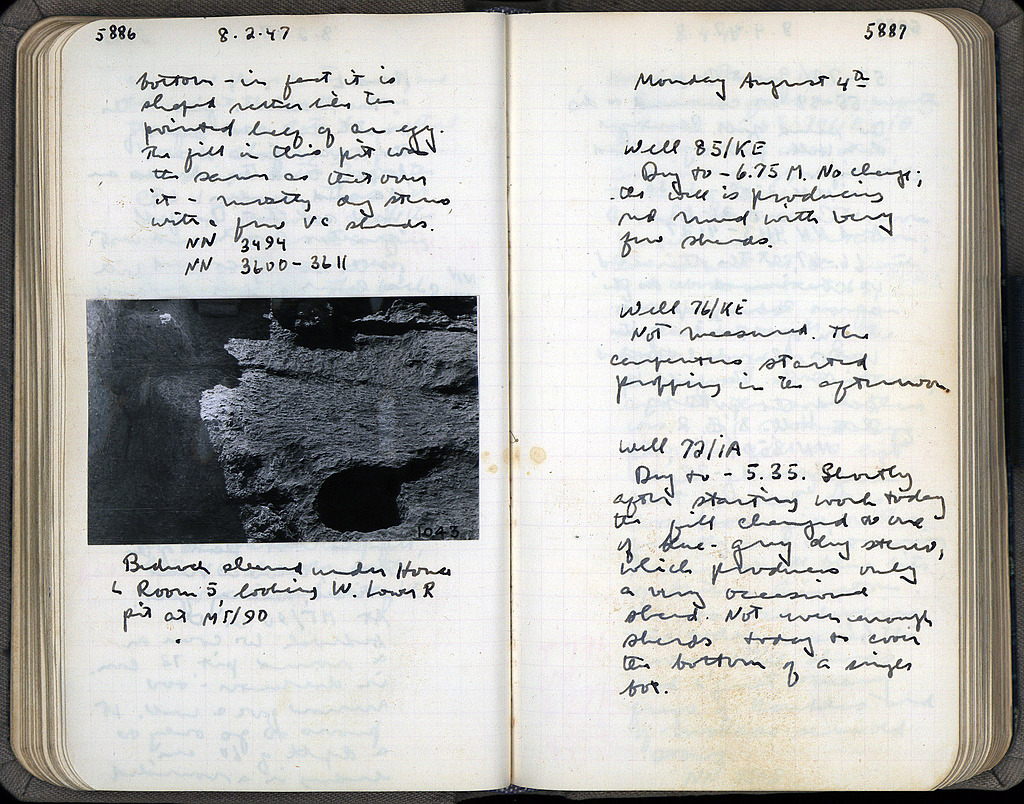 5886
8.2.47
bottom - in fact it is
shaped rather like the
pointed half of an egg.
The fill in this pit was
the same as that over
it - mostly dug stereo
with a few Vc sherds.
NN 3494
NN 3600-3611
1043
Bedrock cleared under House
L Room 5, looking W. Lower R
pit at MT/90
5887
Monday August 4th
Well 85/KE
Dug to - 6.75 M. No change;
the well is producing
red mud with very
few sherds.
Well 76/KE
Not measured. The
carpenters started
propping in the afternoon.
Well 72/IA
Dug to - 5.35. Shortly
after starting work today
the fill changed to one
of blue-gray dug stereo,
which produces only
a very occasional
sherd. Not even enough
sherds today to cover
the bottom of a single
box.